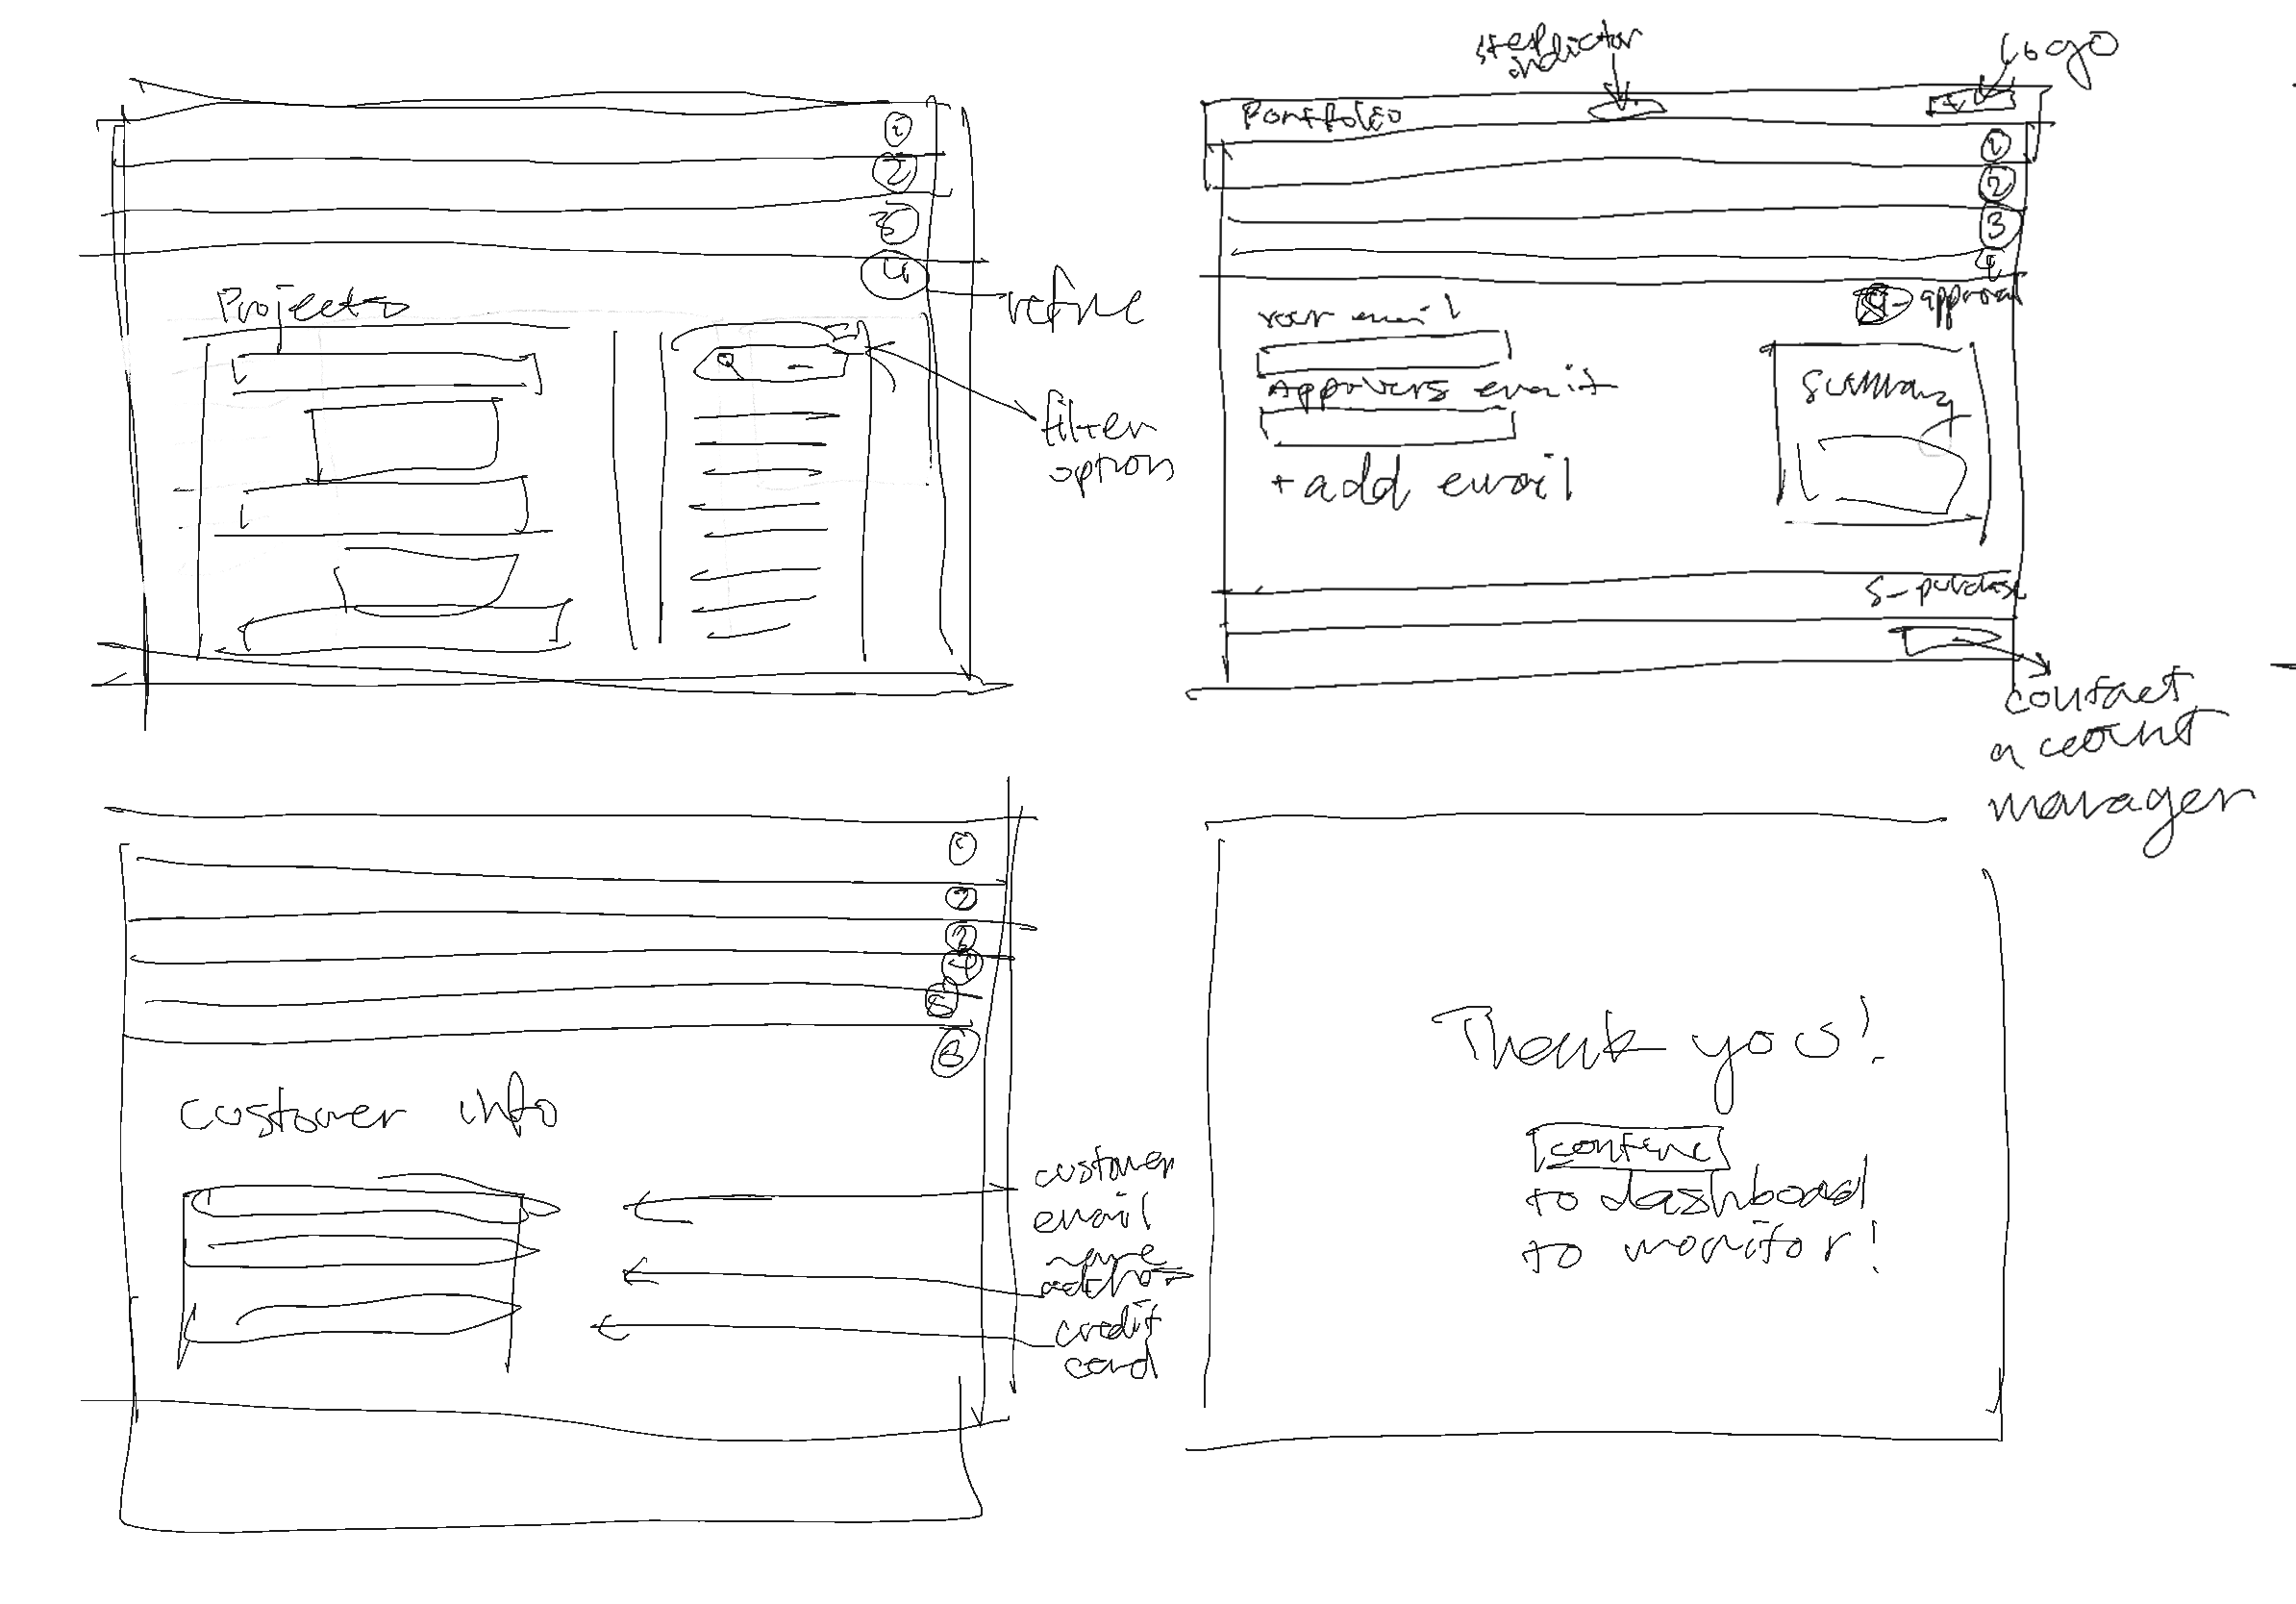 1
2
3
4
Projects
refine
filter
option
step
indictor
Logo
Portfoleo
1
2
3
4
approval
your email
Approvers email
+ add email
Summary
5- purchase
contact
account
manager
1
2
3
4
5
6
customer info
customer
email
name
credit
card
Thank you!
to dashboad
to monitor!